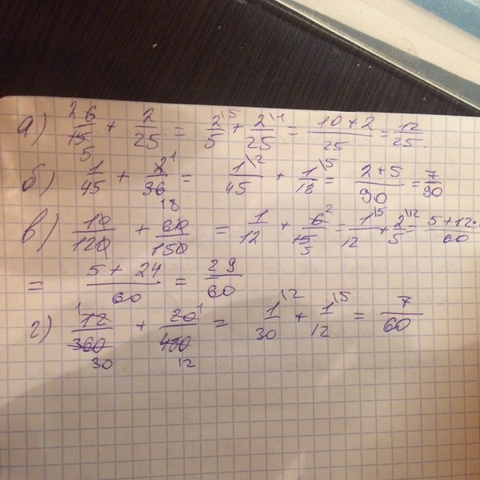 а) 6/15 + 2/25 = 2/5 + 2/25 = 10+2/25 = 12/25
б) 1/45 + 2/36 = 1/45 + 1/18 = 2+5/90 = 7/90
в) 10/120 + 60/150 = 1/12 + 6/15 = 1/12 + 2/5 = 5+12·/60
= 5+24/60 = 29/60
г) 12/360 + 20/ = 1/30 + 1/12 = 7/60